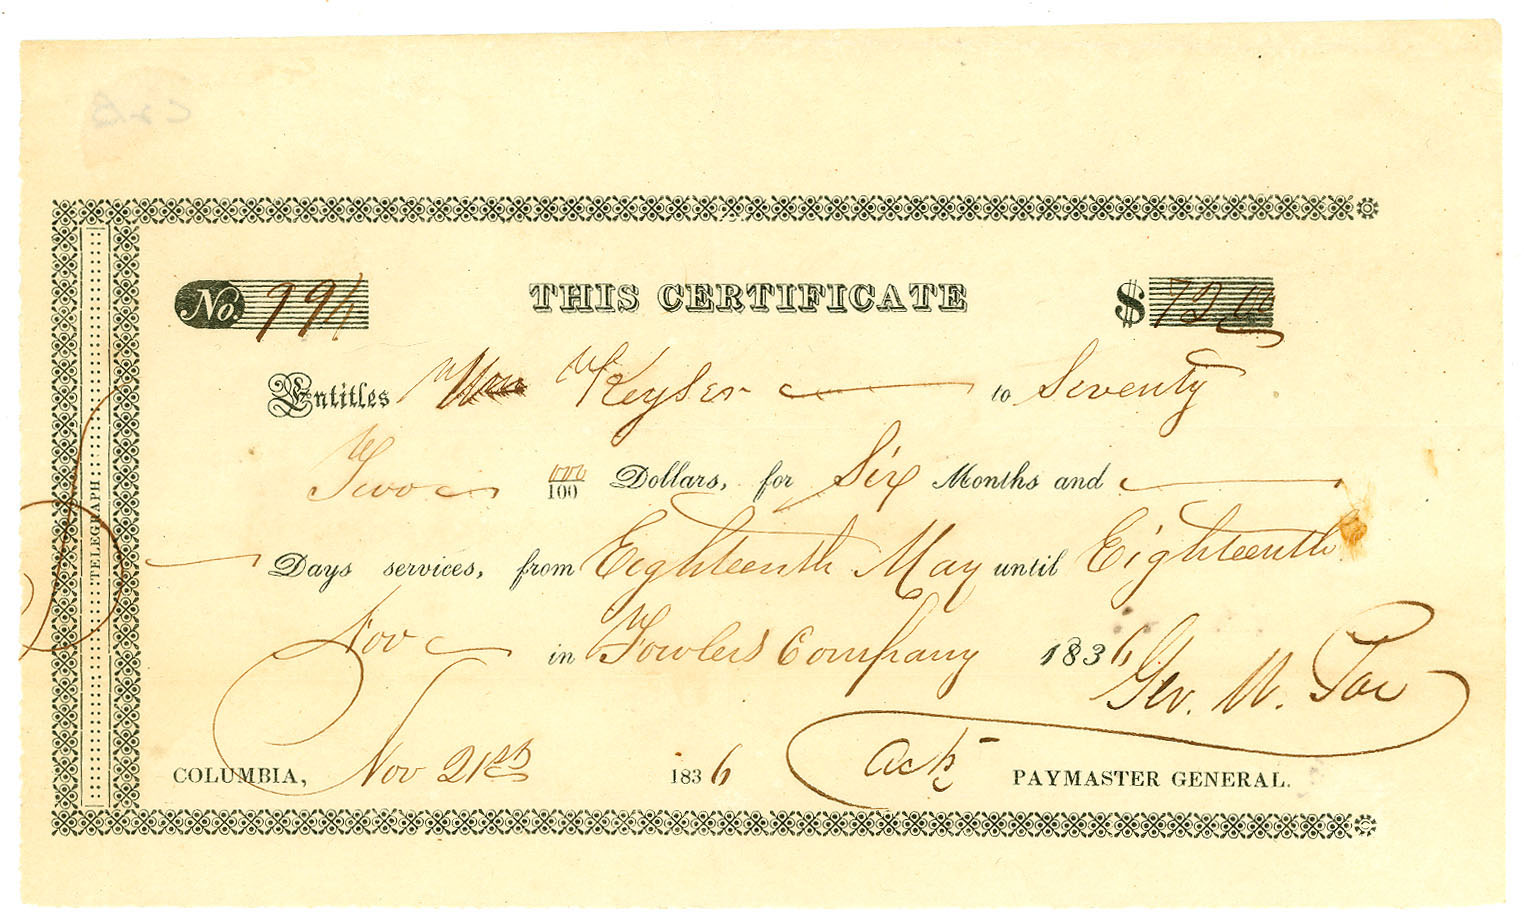 No. 794 THIS CERTIFICATE $72.00
Entitles Wm W Keyser to Seventy
Two 000/100 Dollars, for Six Months and
Days services, from Eighteenth May until Eighteenth
Nov in Fowlers Company 1836
Geo. W. Poe
COLUMBIA, Nov 21st 1836 Act'g PAYMASTER GENERAL.
TELEGRAPH